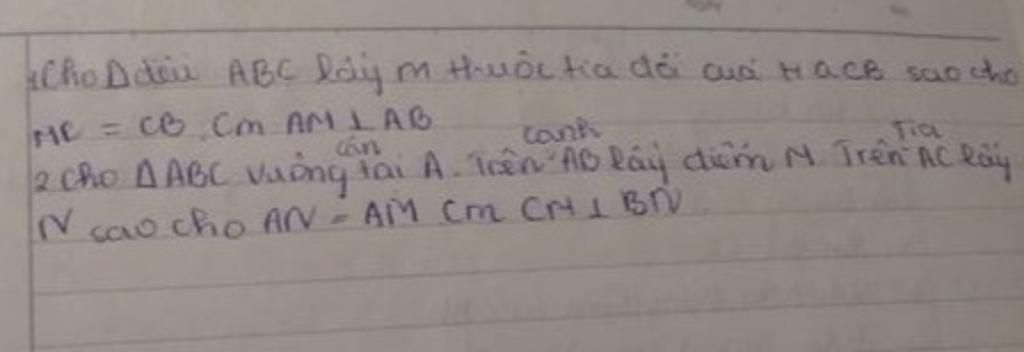 1 Cho Δ đều ABC lấy M thuộc tia đối của tia CB sao cho
MC = CB. Cm AM ⊥ AB
2 cho Δ ABC vuông cân tại A. Trên cạnh AB lấy điểm M. Trên tia AC lấy
N sao cho AN = AM Cm CM ⊥ BN